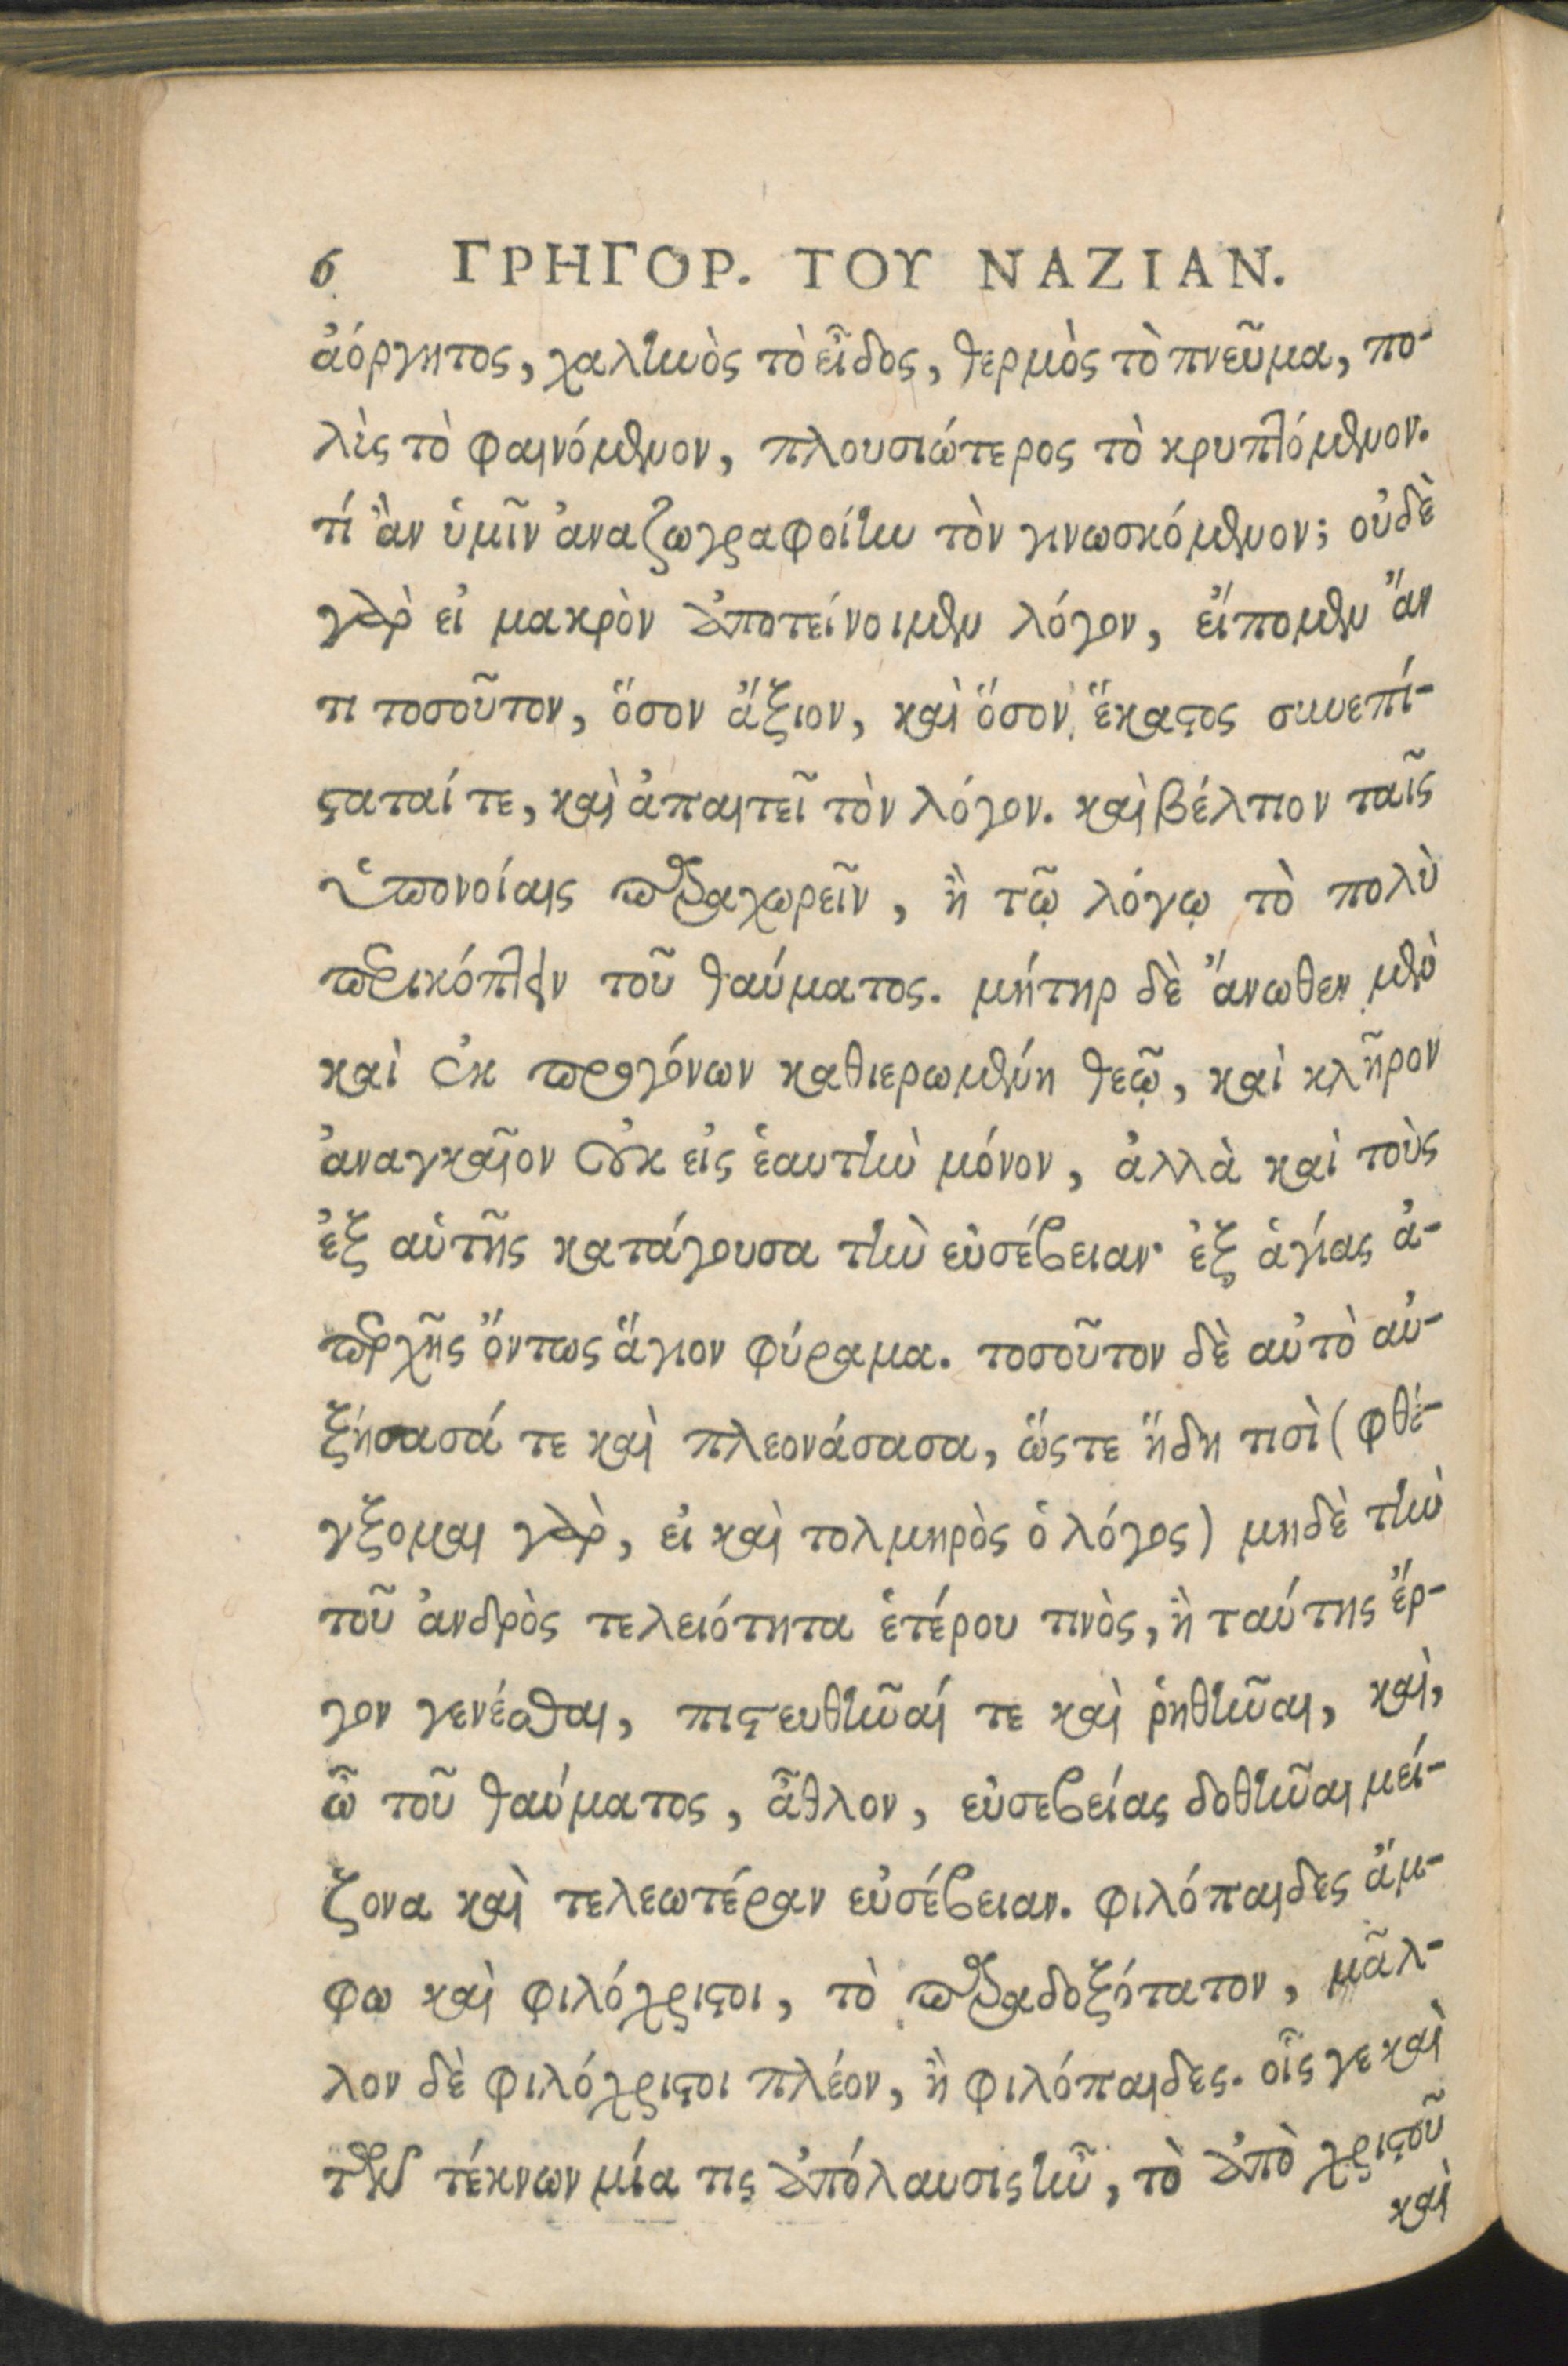 6 ΓΡΗΓΟΡ. ΤΟΥ ΝΑΖΙΑΝ.
ἀόργητος, γαληνὸς τὸ εἶδος, θερμὸς τὸ πνεῦμα, πο-
λὺς τὸ φαινόμενον, πλουσιώτερος τὸ κρυπτόμενον.
τί ἂν ὑμῖν ἀναζωγραφοίην τὸν γινωσκόμενον; οὐδὲ
γὰρ εἰ μακρὸν ἀποτείνοιμεν λόγον, εἴποιμεν ἄν
τι τοσοῦτον, ὅσον ἄξιον, καὶ ὅσον ἕκαστος συνεπί-
σταταί τε, καὶ ἀπαιτεῖ τὸν λόγον. καὶ βέλτιον ταῖς
ὑπονοίαις παραχωρεῖν, ἢ τῷ λόγῳ τὸ πολὺ
περικόπτειν τοῦ θαύματος. μήτηρ δὲ ἄνωθεν μὲν
καὶ ἐκ προγόνων καθιερωμένη θεῷ, καὶ κλῆρον
ἀναγκαῖον οὐκ εἰς ἑαυτὴν μόνον, ἀλλὰ καὶ τοὺς
ἐξ αὑτῆς κατάγουσα τὴν εὐσέβειαν· ἐξ ἁγίας ἀ-
παρχῆς ὄντως ἅγιον φύραμα. τοσοῦτον δὲ αὐτὸ αὐ-
ξήσασά τε καὶ πλεονάσασα, ὥστε ἤδη τισὶ (φθέ-
γξομαι γὰρ, εἰ καὶ τολμηρὸς ὁ λόγος) μηδὲ τὴν
τοῦ ἀνδρὸς τελειότητα ἑτέρου τινὸς, ἢ ταύτης ἔρ-
γον γενέσθαι, πιστευθῆναί τε καὶ ῥηθῆναι, καὶ,
ὢ τοῦ θαύματος, ἆθλον, εὐσεβείας δοθῆναι μεί-
ζονα καὶ τελεωτέραν εὐσέβειαν. φιλόπαιδες ἄμ-
φω καὶ φιλόχριστοι, τὸ παραδοξότατον, μᾶλ-
λον δὲ φιλόχριστοι πλέον, ἢ φιλόπαιδες. οἷς γε καὶ
τῶν τέκνων μία τις ἀπόλαυσις ἦν, τὸ ἀπὸ χριστοῦ
καὶ